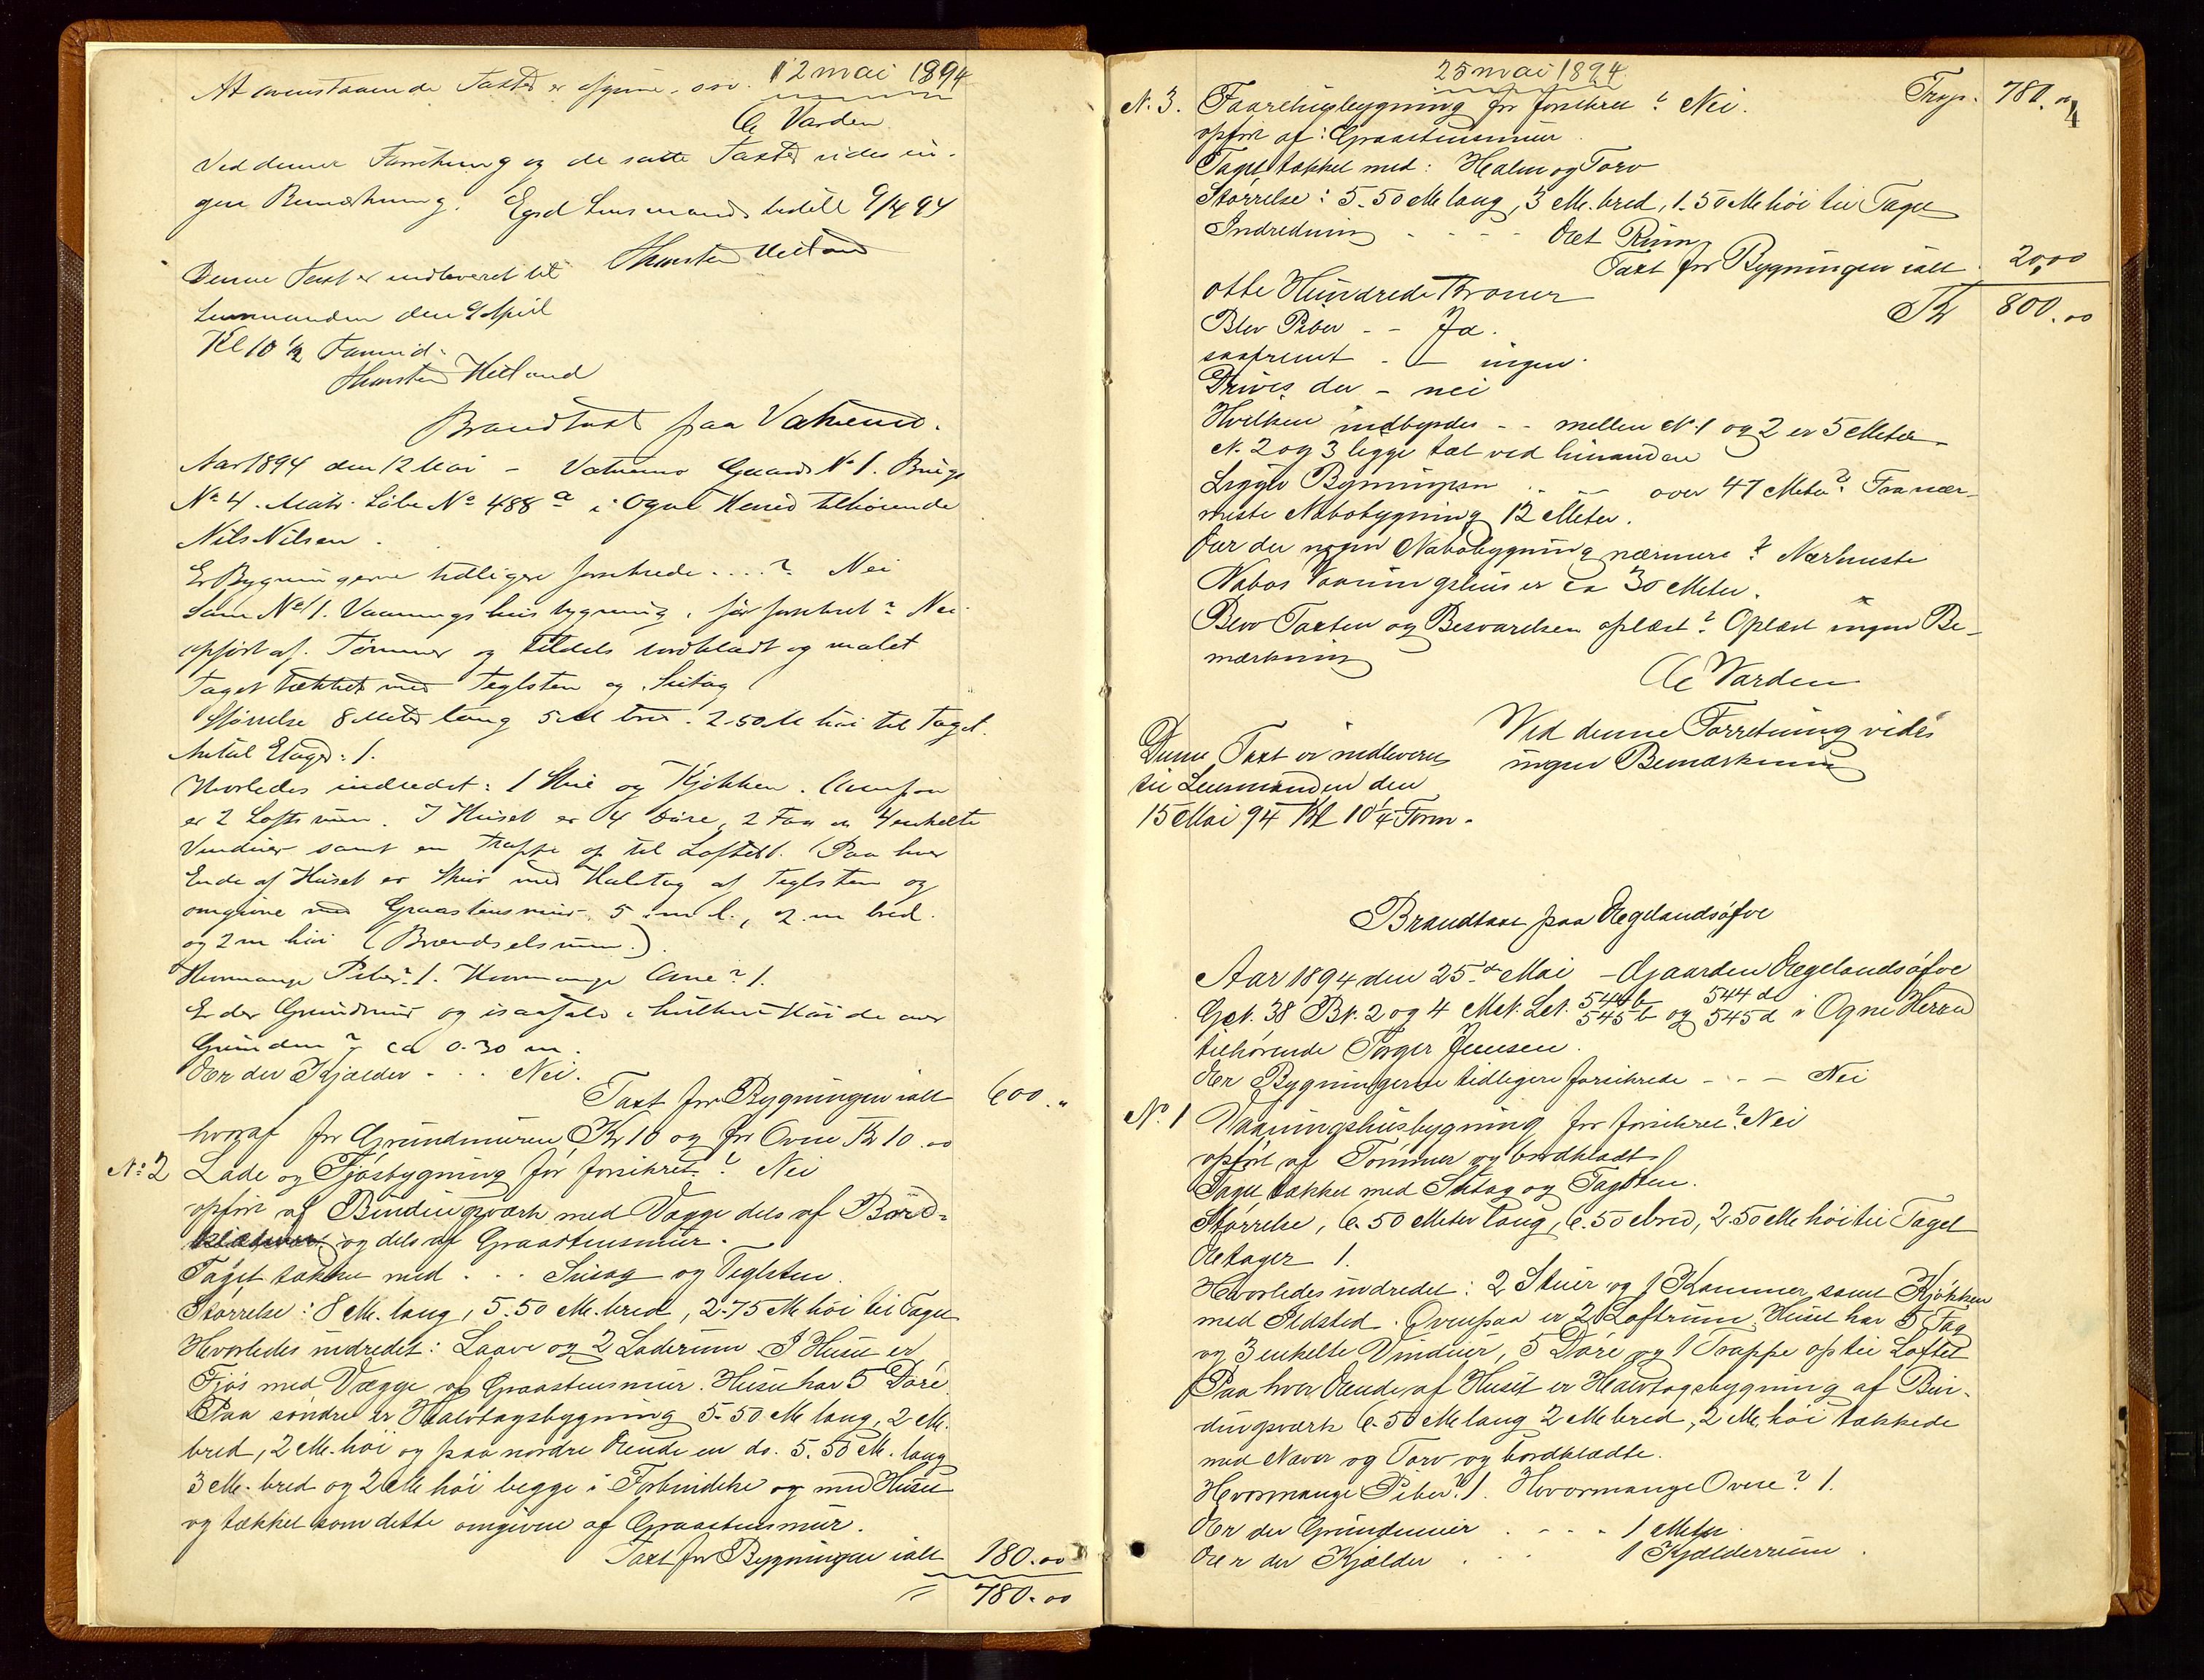 12 mai 1894
At ovenstaaende Taxt er afgivne. osv.
C Varden
Ved denne Forretning og de satte Taxter vides in-
gen Bemærkning. Egsd Lensmandsbestill 9/4 94
Thorsten Helland
Denne Taxt er indleveret til
Lensmanden den 9 April
Kl 10 1/2 Formid.
Thorsten Helland
Brandtaxt paa Vatnemo.
Aar 1894 den 12 Mai - Vatnemo Gaards No 1. Brugs
No 4. Matr. Løbe No 488 a i Ogne Herred tilhørende
Nils Nilsen.
Er Bygningerne tidligere forsikrede...? Nei
Som No 1. Vaaningshusbygning, før forsikret? Nei.
opført af. Tømmer og tildels bordklædt og malet
Taget tækket med Teglsten og Sutag
Størrelse 8 Meter lang 5 M bred. 2-50 M høi til Taget.
Antal Etager: 1.
Hvorledes indredet: 1 Stue og Kjøkken. Ovenpaa
er 2 Loftsrum. I Huset er 4 Døre, 2 Fag og 4 enkelte
Vinduer samt en Trappe op til Loftet. Paa hver
Ende af Huset er Skur med Halvtag af Teglsten og
omgivne med Graastensmur, 5 m l., 2 m bred
og 2 m høi (Brændselsrum.)
Hvormange Piber? 1. Hvormange Ovne? 1.
Er der Grundmur og isaafald i hvilken Høide over
Grunden? ca 0.30 m.
Er der Kjælder - . . Nei.
Taxt for Bygningen ialt 600. "
hvoraf for Grundmuren Kr 10 og for Ovne Kr 10.00
No 2 Lade og Fjøsbygning før forsikret? Nei
opført af Bindingsværk med Vægge dels af Bord-
og dels af Graastensmur.
Taget tækket med . . . Sutag og Teglsten.
Størrelse: 8 M. lang, 5.50 M. bred, 2-75 M høi til Taget
Hvorledes indredet: Laave og 2 Laderum. I Huset er
Fjøs med Vægge af Graastensmur. Huset har 5 Døre
Paa søndre er Halvtagsbygning 5-50 M lang, 2 M.
bred, 2 M. høi og paa nordre Ende en do. 5.50 M. lang
3 M. bred og 2 M høi begge i Forbindelse og med Huset
og tækket som dette omgivne af Graastensmur.
Taxt for Bygningen ialt 180.00
780.00
25 mai 1894
4
N. 3. Faarehusbygning før forsikret? Nei. Trsp. 780.00
opført af: Graastensmur
Taget tækket med: Halm og Torv
Størrelse: 5.50 M lang, 3 M. bred, 1.50 M høi til Taget
Indredning - - - Et Rum
Taxt for Bygningen ialt 20.00
otte Hundrede Kroner Kr 800.00
Blev Piber - - Ja.
saafremt - - ingen.
Drives der - nei
Hvilken indbyrdes - - mellem N. 1 og 2 er 5 Meter
N. 2 og 3 ligge tæt ved hinanden
Ligger Bygningen . - - over 47 Meter? Fra nær-
meste Nabobygning 12 Meter.
Er der nogen Nabobygning nærmere? Nærmeste
Nabos Vaaningshus er ca 30 Meter.
Blev Taxten og Besvarelsen oplæst? Oplæst ingen Be-
mærkning
C Varden
Ved denne Forretning vides
ingen Bemærkning
Denne Taxt er indleveret
til Lensmanden den
15 Mai 94 Kl 10 1/4 Form.
Brandtaxt paa Ægelandsøfve
Aar 1894 den 25de Mai - Gaarden Ægelandsøfve
Grt. 38 Br. 2 og 4 Mat. Lst. 544 b 545 b og 544 d 545 d i Ogne Herred
tilhørende Torger Jensen.
Er Bygningerne tidligere forsikrede - - - Nei
No. 1 Vaaningshusbygning før forsikret? Nei
opført af Tømmer og bordklædt
Taget tækket med Sutag og Tagsten.
Størrelse, 6.50 Meter lang, 6.50 M bred, 2.50 M høi til Taget
Etager 1.
Hvorledes indredet: 2 Stuer og 1 Kammer samt Kjøkken
med Ildsted. Ovenpaa er 2 Loftrum. Huset har 5 Fag
og 3 enkelte Vinduer, 5 Døre og 1 Trappe op til Loftet
Paa hver Ende af Huset er Halvtagsbygning af Bin-
dingsværk 6.50 M lang 2 M bred, 2 M. høi tækkede
med Næver og Torv og bordklædte.
Hvormange Piber? 1. Hvormange Ovne? 1.
Er der Grundmur . - - . 1 Meter.
Er der Kjælder . . . 1 Kjælderrum.